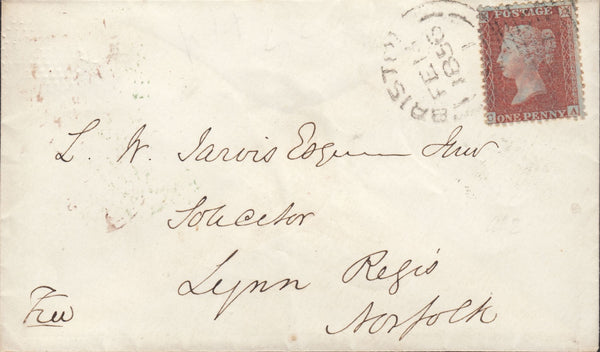 BRISTOL
FE 1
1856
POSTAGE
ONE PENNY
A
L. W. Jarvis Esq Junr
Solicitor
Lynn Regis
Norfolk
Free